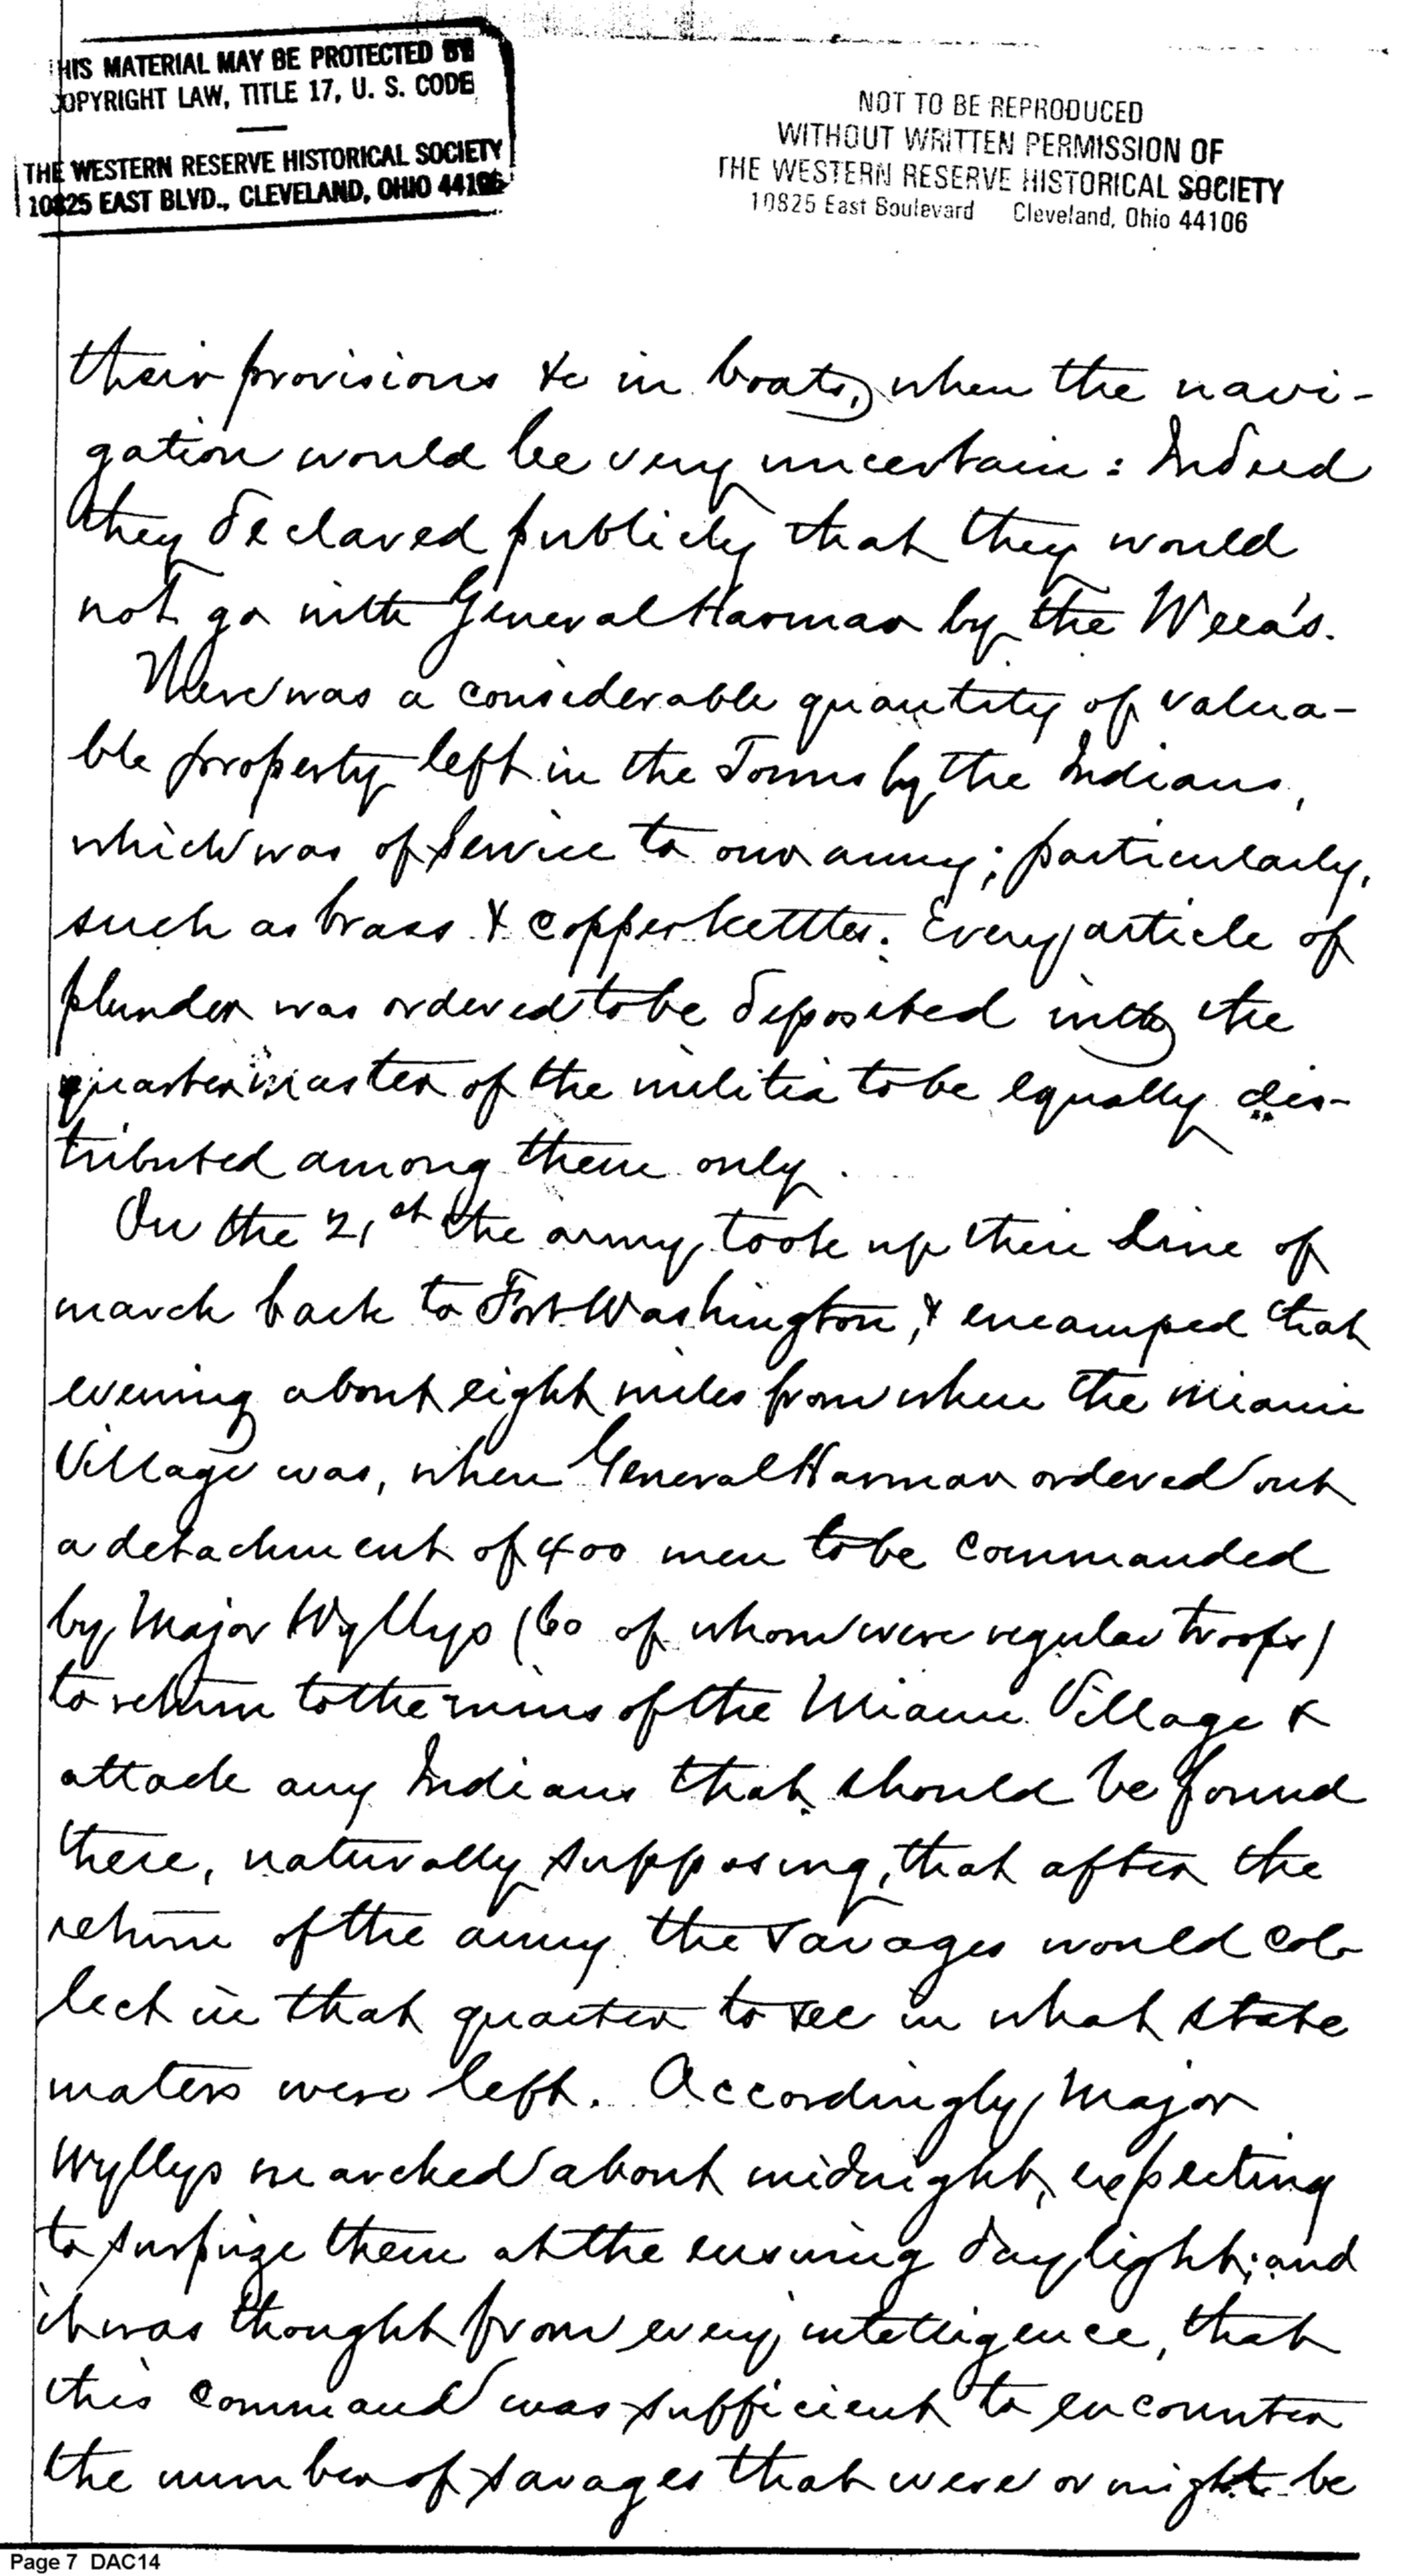 HIS MATERIAL MAY BE PROTECTED BY
COPYRIGHT LAW, TITLE 17, U. S. CODE
THE WESTERN RESERVE HISTORICAL SOCIETY
10825 EAST BLVD., CLEVELAND, OHIO 44106
NOT TO BE REPRODUCED
WITHOUT WRITTEN PERMISSION OF
THE WESTERN RESERVE HISTORICAL SOCIETY
10825 East Boulevard Cleveland, Ohio 44106
their provisions &c in boats, when the navi-
gation would be very uncertain: Indeed
they declared publicly that they would
not go with General Harmar by the Weea's.
There was a considerable quantity of valua-
ble property left in the Towns by the Indians,
which was of service to our army; particularly,
such as brass & copper kettles. Every article of
plunder was ordered to be deposited with the
quartermaster of the militia to be equally dis-
tributed among them only.
On the 21st the army took up their line of
march back to Fort Washington, & encamped that
evening about eight miles from where the Miami
Village was, when General Harmar ordered out
a detachment of 400 men to be commanded
by Major Wyllys (60 of whom were regular troops)
to return to the ruins of the Miami Village &
attack any Indians that should be found
there, naturally supposing, that after the
return of the army the savages would col-
lect in that quarter to see in what state
maters were left. Accordingly Major
Wyllys marched about midnight, expecting
to surprize them at the ensuing daylight; and
it was thought from every intelligence, that
this command was sufficient to encounter
the number of savages that were or might be
Page 7 DAC14